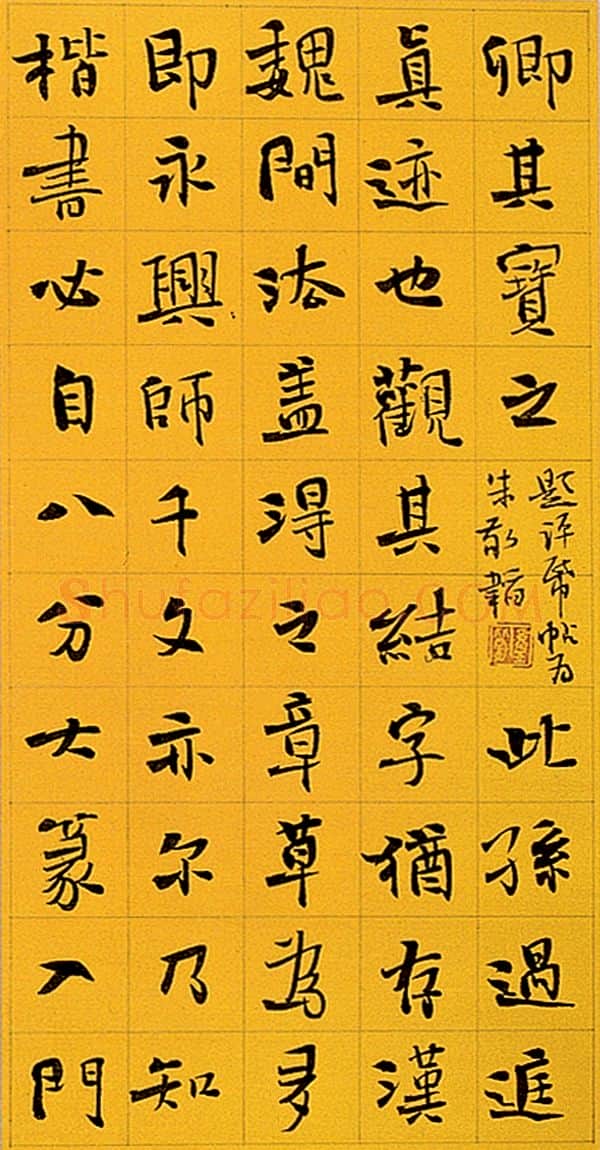 卿其寶之
題評帋帖為
朱敬韜
此孫過庭
真迹也觀其結字猶存漢
魏間法盖得之章草為多
即永興師千文亦尔乃知
楷書必自八分大篆入門
Shufaziliao.COM